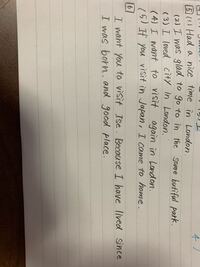 5 (1) Had a nice time in London
(2) I was glad to go to in the same butiful park
(3) I land city in London.
(4) I want to visit again in London.
(5) If you visit in Japan, I come to home.
6
I want you to visit Ise. Because I have lived since
I was both. and good place.